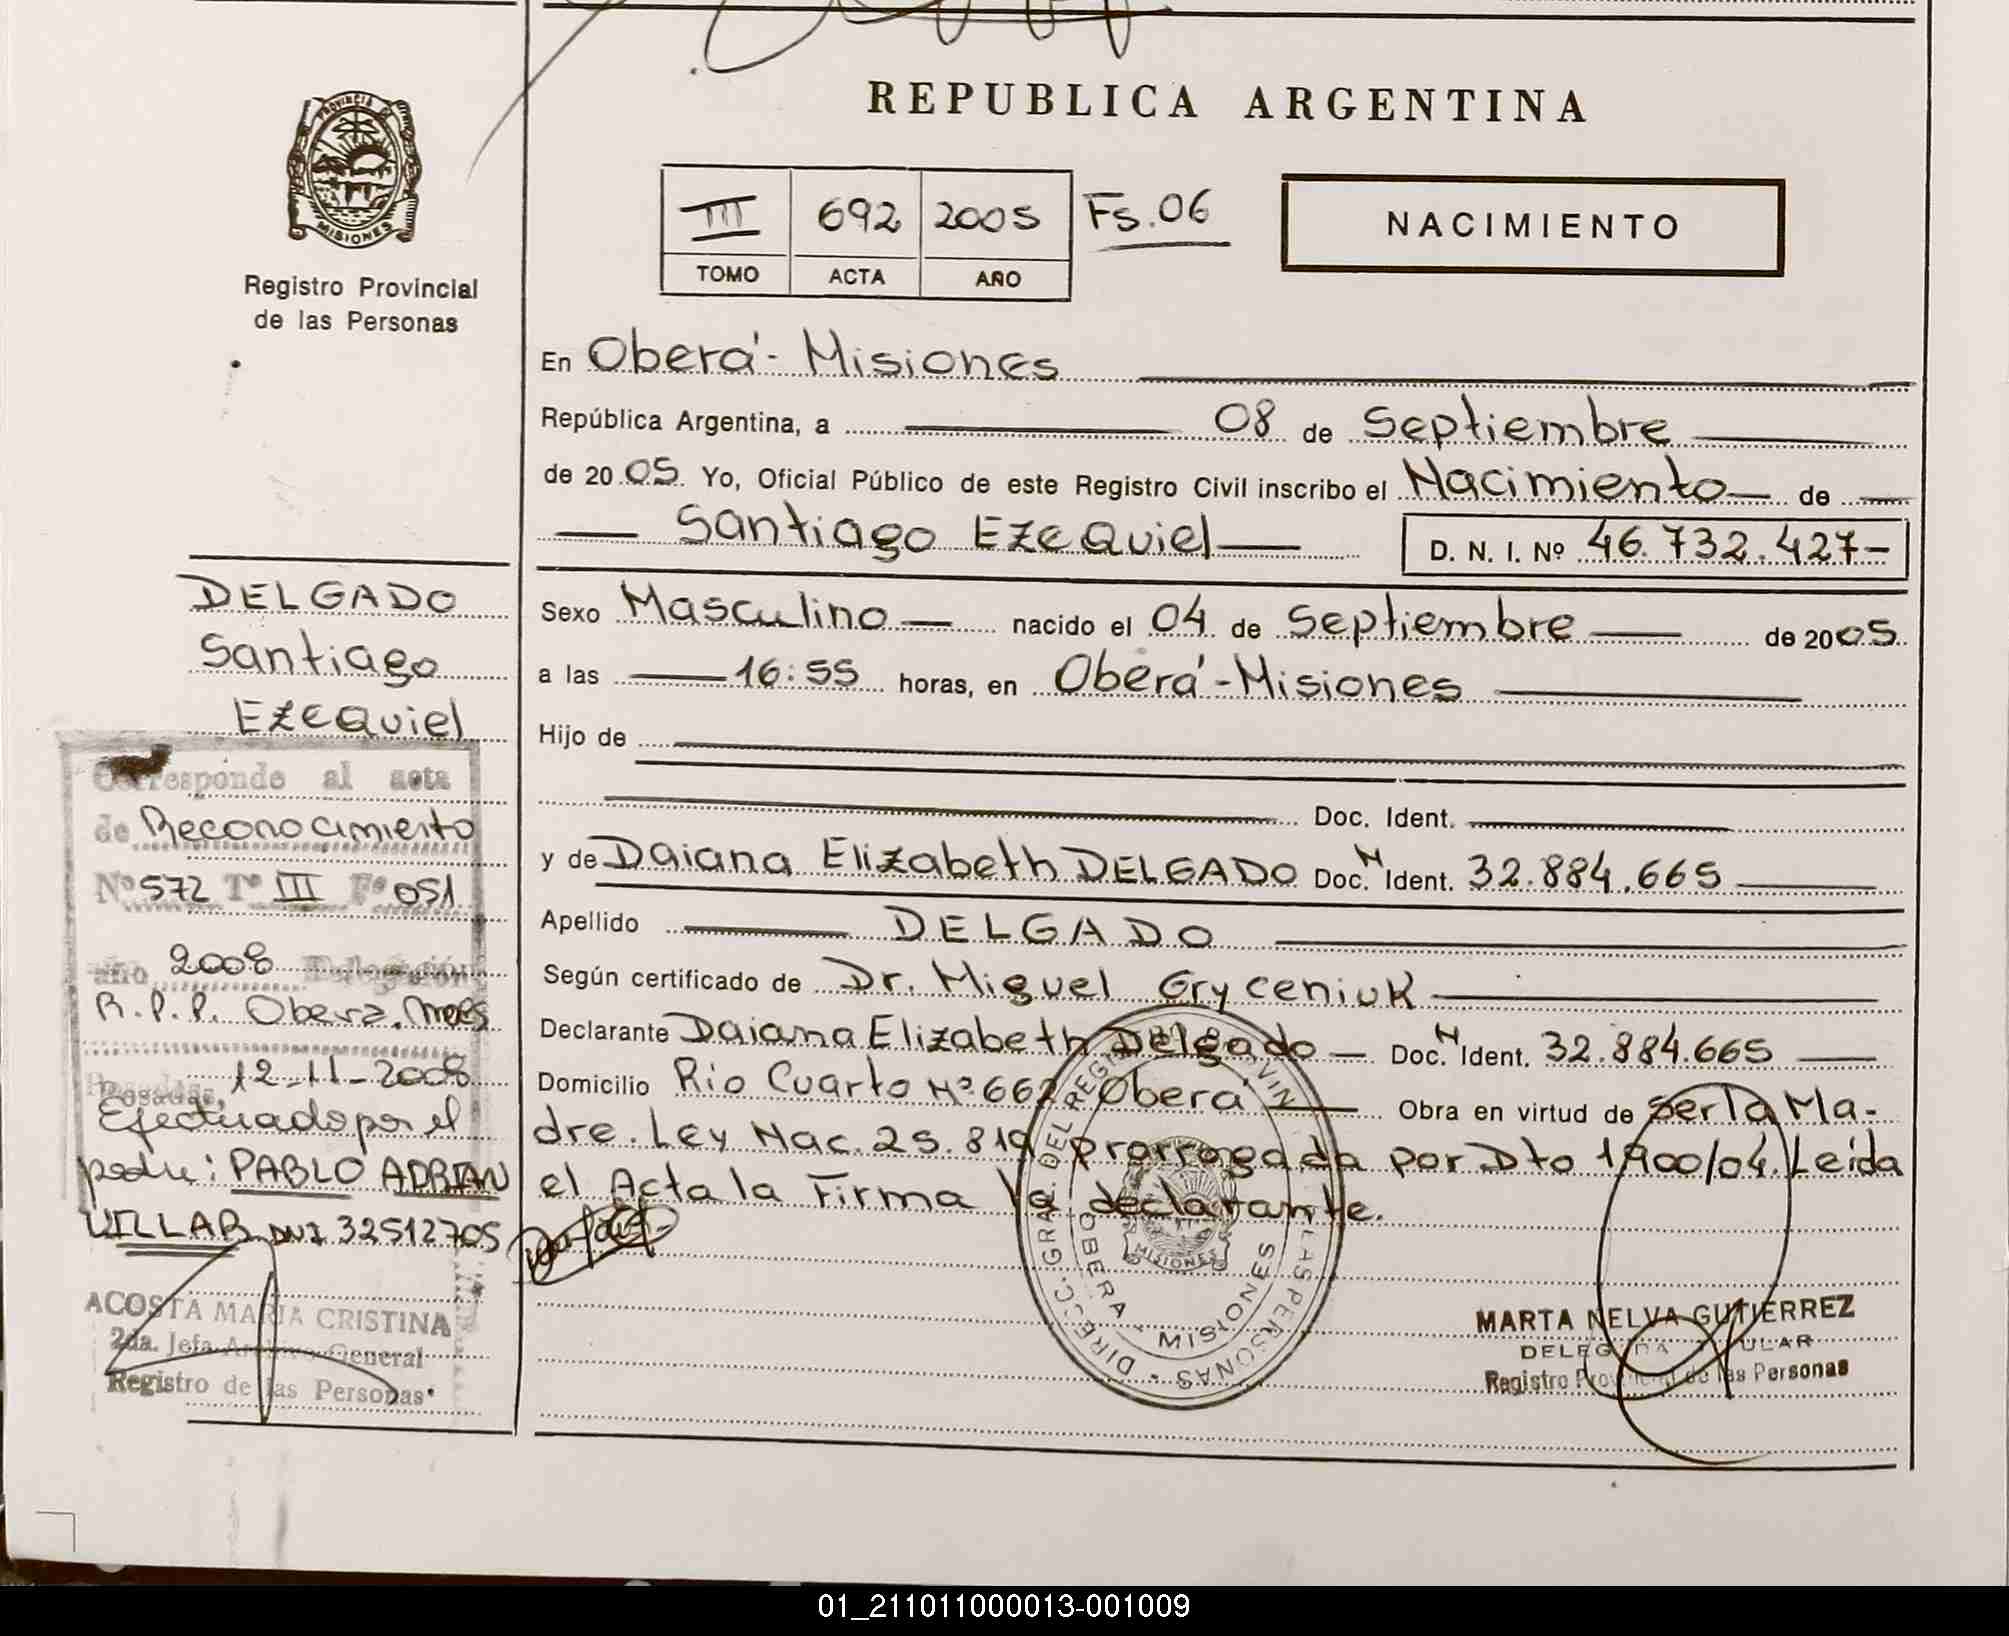 REPUBLICA ARGENTINA
PROVINCIA DE MISIONES
Registro Provincial
de las Personas
III 692 2005 Fs.06
TOMO ACTA AÑO
NACIMIENTO
En Oberá - Misiones
República Argentina, a 08 de Septiembre
de 2005 Yo, Oficial Público de este Registro Civil inscribo el Nacimiento de
Santiago Ezequiel D. N. I. Nº 46.732.427-
Sexo Masculino nacido el 04 de Septiembre de 2005
a las 16:55 horas, en Oberá - Misiones
Hijo de
Doc. Ident.
y de Daiana Elizabeth DELGADO Doc. N Ident. 32.884.665
Apellido DELGADO
Según certificado de Dr. Miguel Gryceniuk
Declarante Daiana Elizabeth Delgado Doc. N Ident. 32.884.665
Domicilio Rio Cuarto Nº 662 Oberá Obra en virtud de ser la Ma-
dre. Ley Nac. 25.819 prorrogada por Dto 1900/04. Leida
el Acta la Firma la declarante.
DIRECC. GRAL. DEL REG. PROVIN. LAS PERSONAS
OBERA - MISIONES
MISIONES
MARTA NELVA GUTIERREZ
DELEGADA TITULAR
Registro Provincial de las Personas
DELGADO
Santiago
Ezequiel
Corresponde al acta
de Reconocimiento
Nº 572 Tº III Fº 051
año 2008 Delegación
R.P.P. Oberá. Mnes
Posadas, 12-11-2008
Efectuado por el
padre: PABLO ADRIAN
VILLAR DNI 32512705
ACOSTA MARIA CRISTINA
2da. Jefa Archivo General
Registro de las Personas
01_211011000013-001009